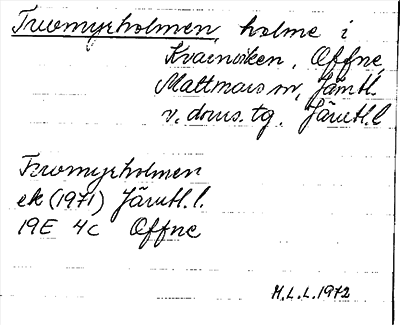 Tvuomyrholmen, holme i
Kvarnviken, Offne,
Mattmars sn, Jämtl.
v. doms. tg. Jämtl. l
Tvuomyrholmen
ek (1971) Jämtl. l.
19E 4c Offne
M.L.L. 1972